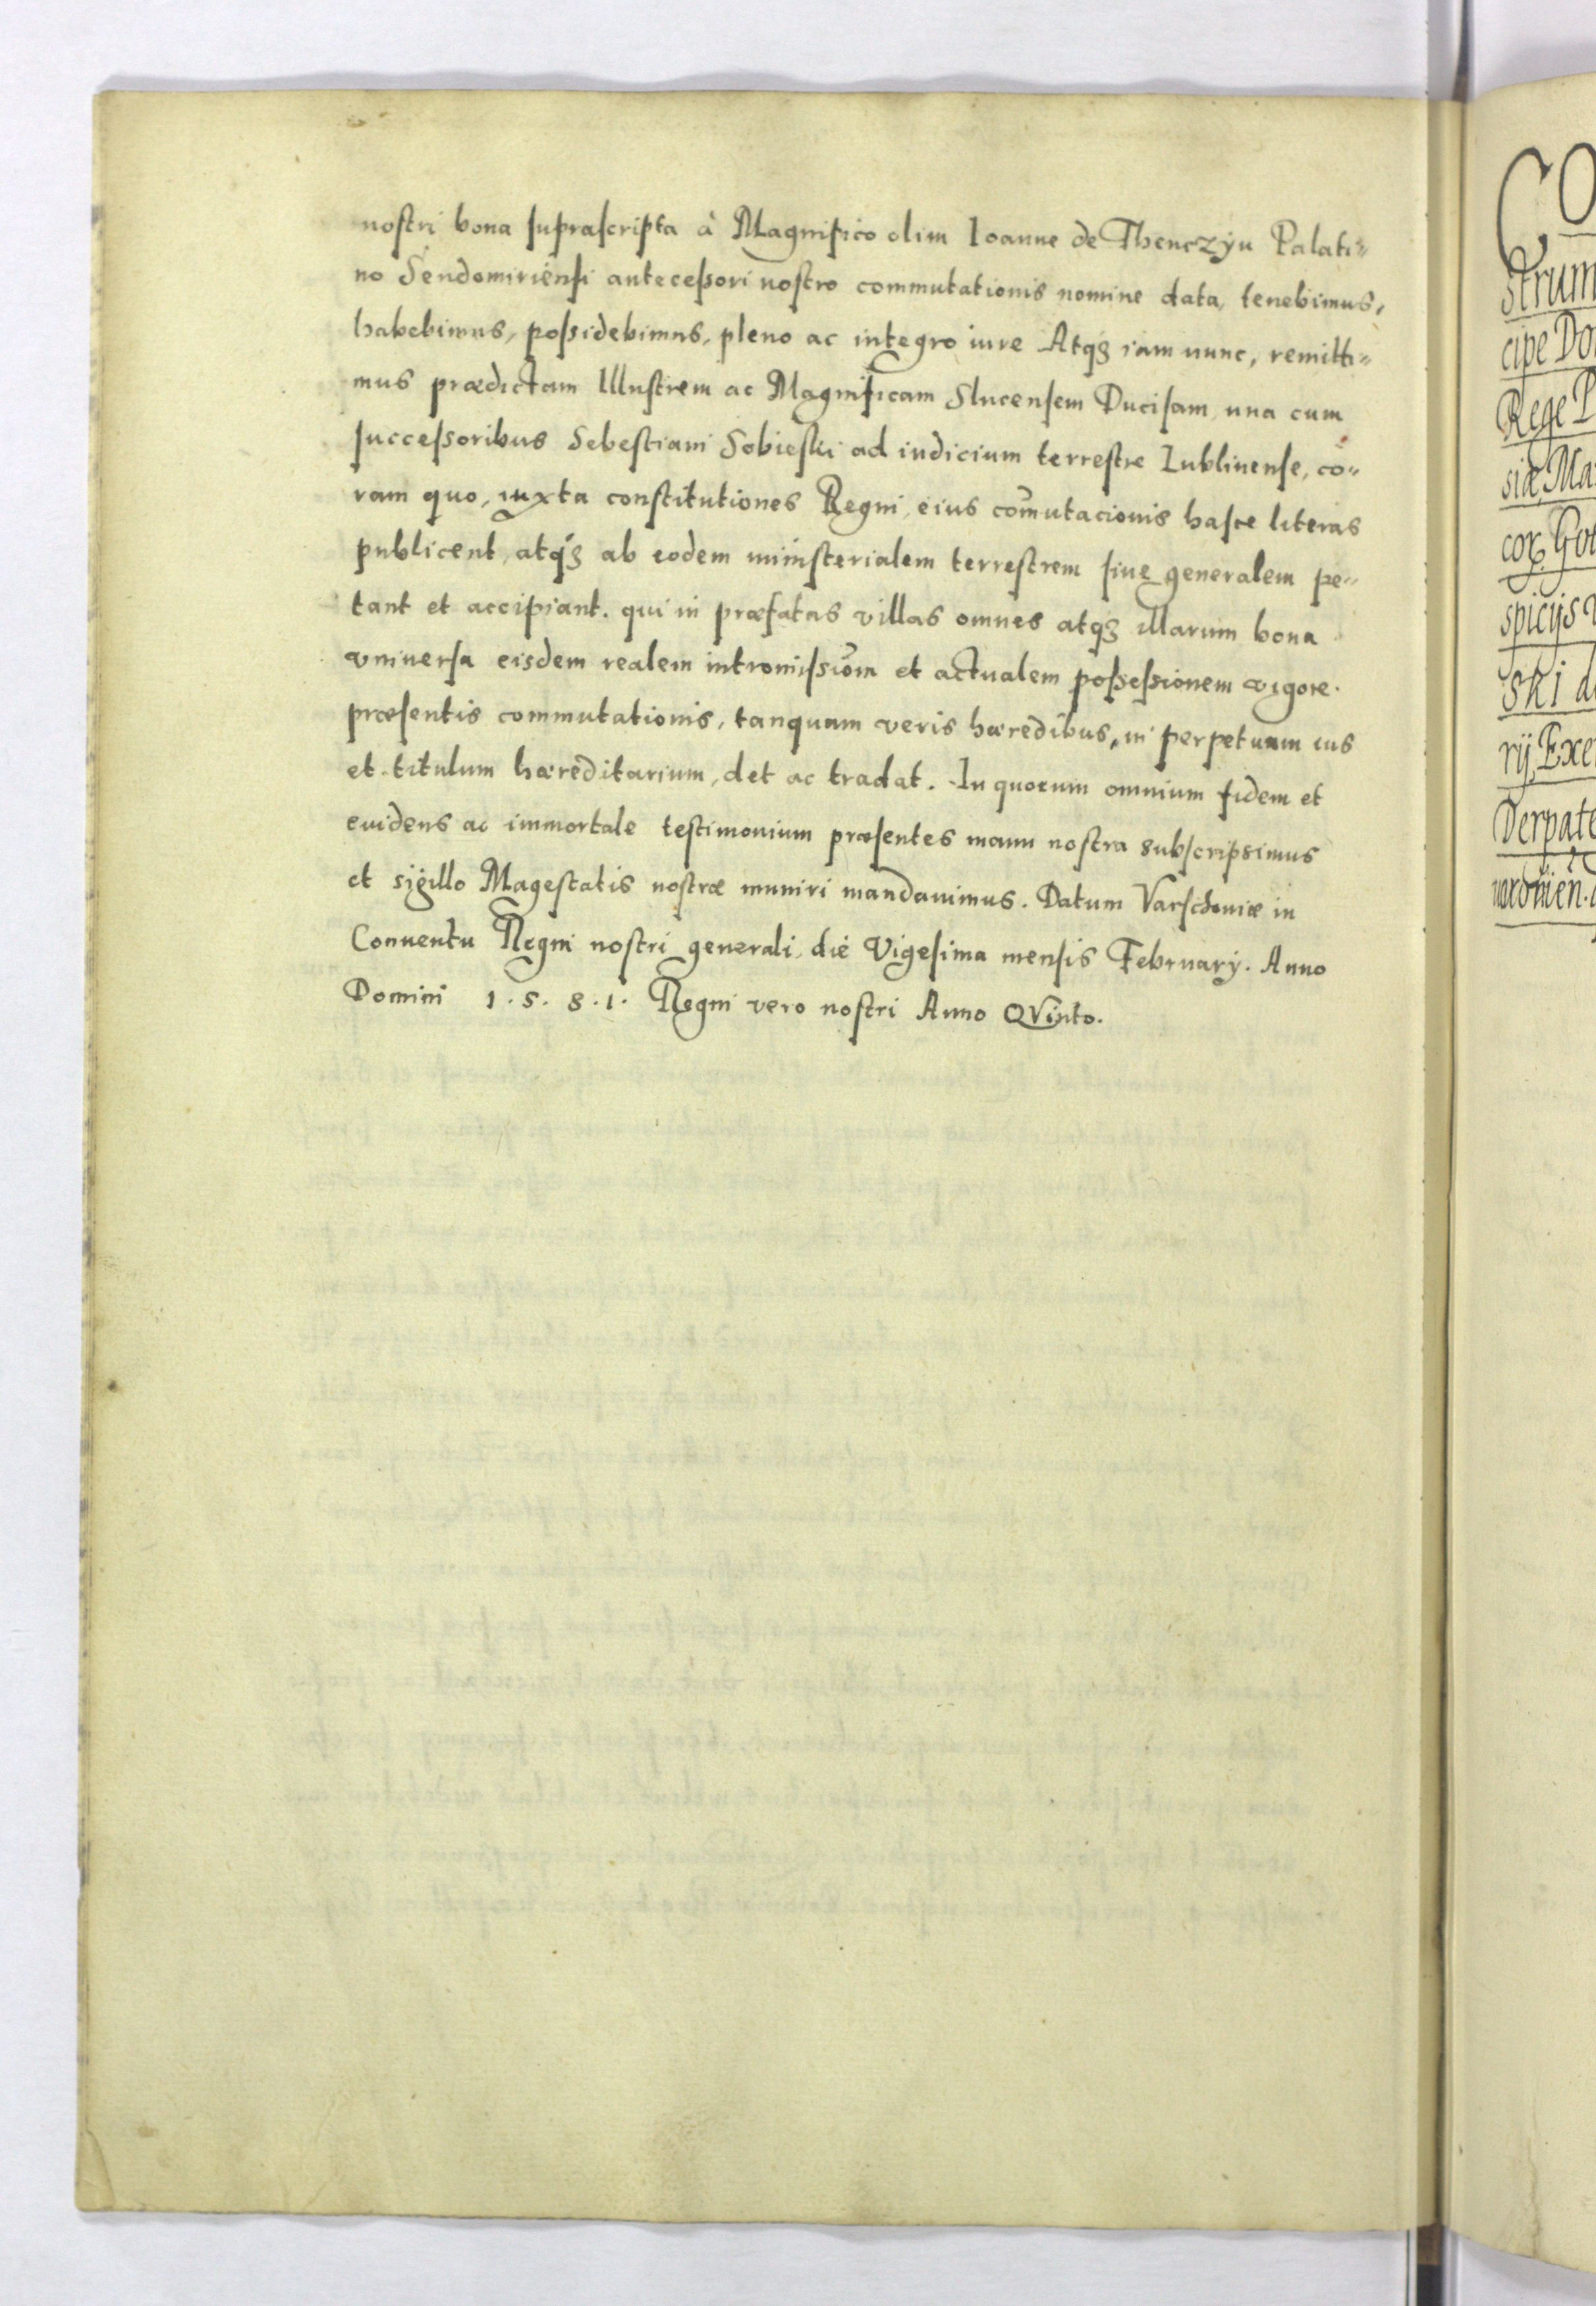 nostri bona suprascripta à Magnifico olim Ioanne de Thenczÿn Palati=
no Sendomiriensi antecessori nostro commutationis nomine data, tenebimus,
habebimus, possidebimus, pleno ac integro iure Atq꞉ iam nunc, remitti=
mus prædictam Illustrem ac Magnificam Slucensem Ducisam, una cum
successoribus Sebestiani Sobieski ad iudicium terrestre Lublinense, co=
ram quo, iuxta constitutiones Regni, eius com̃utacionis hasce literas
publicent, atq́꞉ ab eodem ministerialem terrestrem siue generalem pe=
tant et accipiant. qui in præfatas villas omnes atq꞉ illarum bona
vniuersa eisdem realem intromissiom̃ et actualem possessionem vigore.
præsentis commutationis, tanquam veris hæredibus, in perpetuum ius
et titulum hæreditarium, det ac tradat. In quorum omnium fidem et
euidens ac immortale testimonium præsentes manu nostra subscripsimus
et sigillo Magestatis nostræ muniri mandauimus. Datum Varschouiæ in
Conuentu Regni nostri generali, die Vigesima mensis Februarÿ. Anno
Domini 1.5.8.1. Regni vero nostri Anno QVinto.
CO
strum
cipe Do
Rege P
siæ, Ma
spicijs
ski d
rij, Exe
Derpate